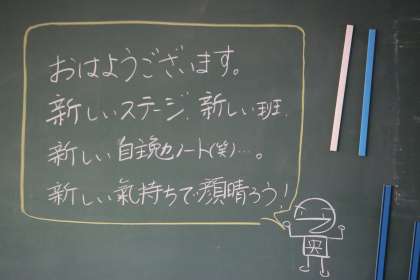 おはようございます。
新しいステージ、新しい班、
新しい自主勉ノート(笑)…。
新しい氣持ちで顔晴ろう！